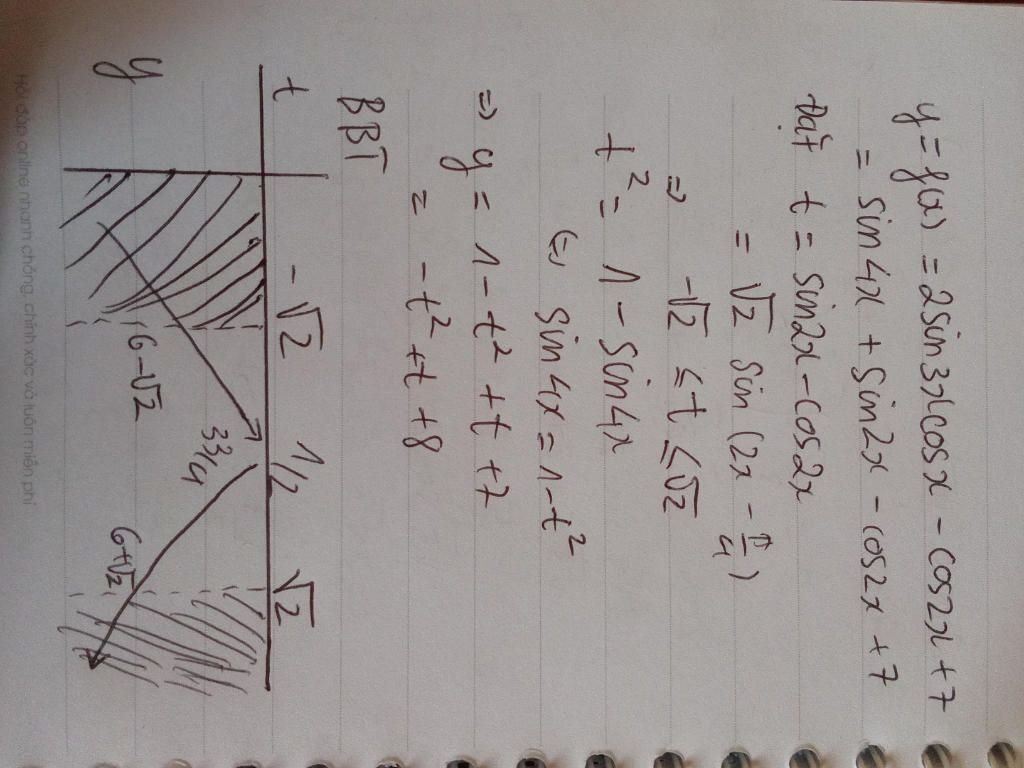 y = f(x) = 2sin3xcosx - cos2x + 7
= sin4x + sin2x - cos2x + 7
Đặt t = sin2x - cos2x
= √2 sin (2x - π/4)
⇒ -√2 ≤ t ≤ √2
t² = 1 - sin4x
⇔ sin4x = 1 - t²
⇒ y = 1 - t² + t + 7
= -t² + t + 8
BBT
t -√2 1/2 √2
y 6-√2 33/4 6+√2
Hỏi đáp online nhanh chóng, chính xác và luôn miễn phí